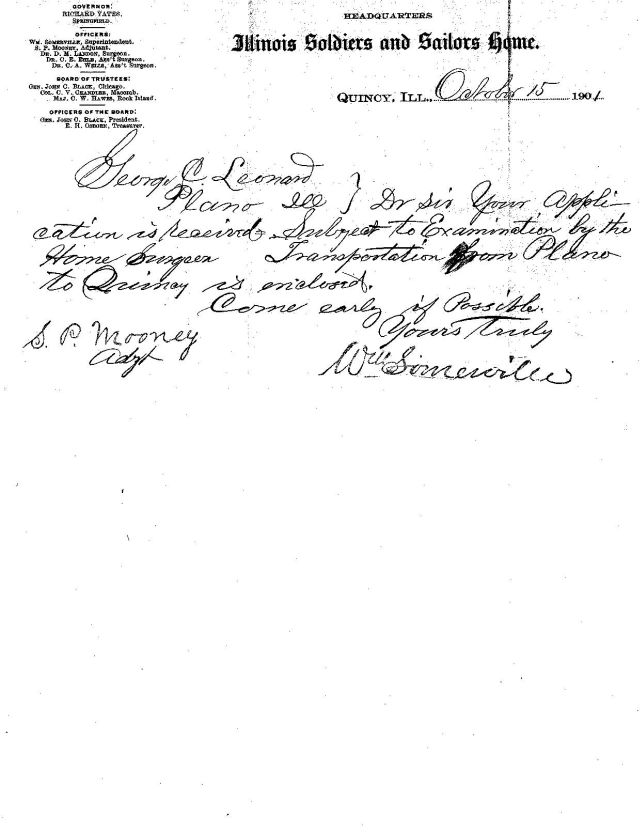 GOVERNOR:
RICHARD YATES,
SPRINGFIELD.
OFFICERS:
WM. SOMERVILLE, Superintendent.
S. P. MOONEY, Adjutant.
DR. D. M. LANDON, Surgeon.
DR. O. E. EHLE, Ass't Surgeon.
DR. C. A. WELLS, Ass't Surgeon.
BOARD OF TRUSTEES:
GEN. JOHN C. BLACK, Chicago.
COL. C. V. CHANDLER, Macomb.
MAJ. C. W. HAWES, Rock Island.
OFFICERS OF THE BOARD:
GEN. JOHN C. BLACK, President.
E. H. OSBORN, Treasurer.
HEADQUARTERS
Illinois Soldiers and Sailors Home.
QUINCY, ILL., October 15 1901
George C Leonard
Plano Ill } Dr sir Your Appli-
cation is received. Subject to Examination by the
Home Surgeon Transportation from Plano
to Quincy is enclosed.
Come early if Possible.
Yours truly
S. P. Mooney
Adjt
Wm Somerville